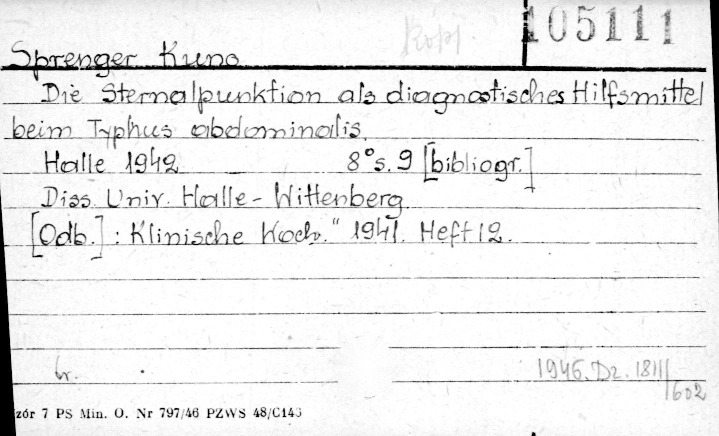 Kopf.
105111
Sprenger Kuno
Die Sternalpunktion als diagnostisches Hilfsmittel
beim Typhus abdominalis.
Halle 1942 8° s. 9 [bibliogr.]
Diss. Univ. Halle-Wittenberg.
[Odb.]: Klinische Woch." 1941. Heft 12.
1946. Dz. 181/
602
zór 7 PS Min. O. Nr 797/46 PZWS 48/C143